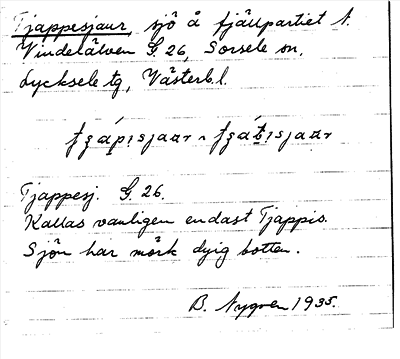 Tjappesjaur, sjö å fjällpartiet N.
Vindelälven G 26, Sorsele sn,
Lycksele tg, Västerb.l.
Tjappesj. G. 26.
Kallas vanligen endast Tjappis.
Sjön har mörk dyig botten.
B. Nygren 1935.